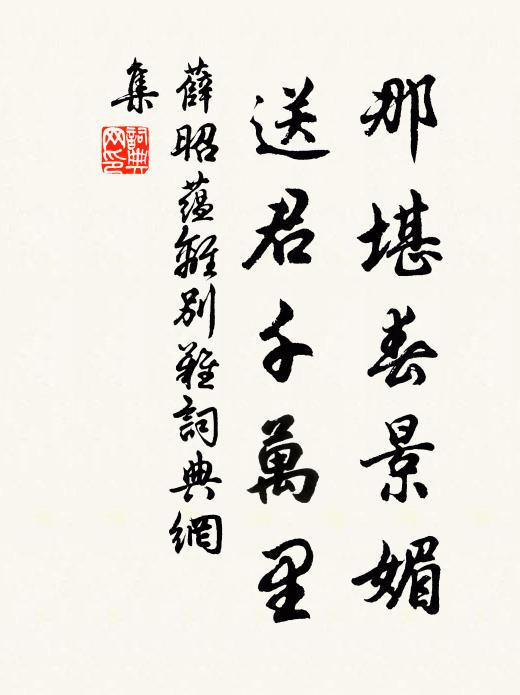 那堪春景媚
送君千萬里
薛昭蘊離別難詞典網
集
詞典
网印